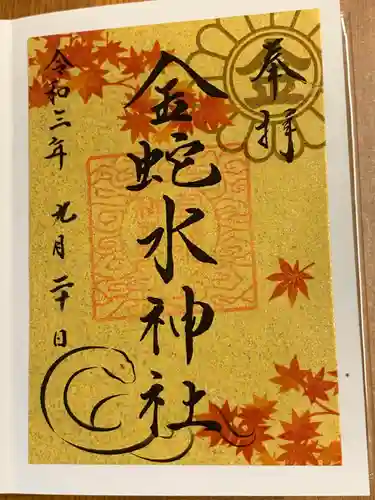 奉拝
金蛇水神社
令和三年 九月 二十日